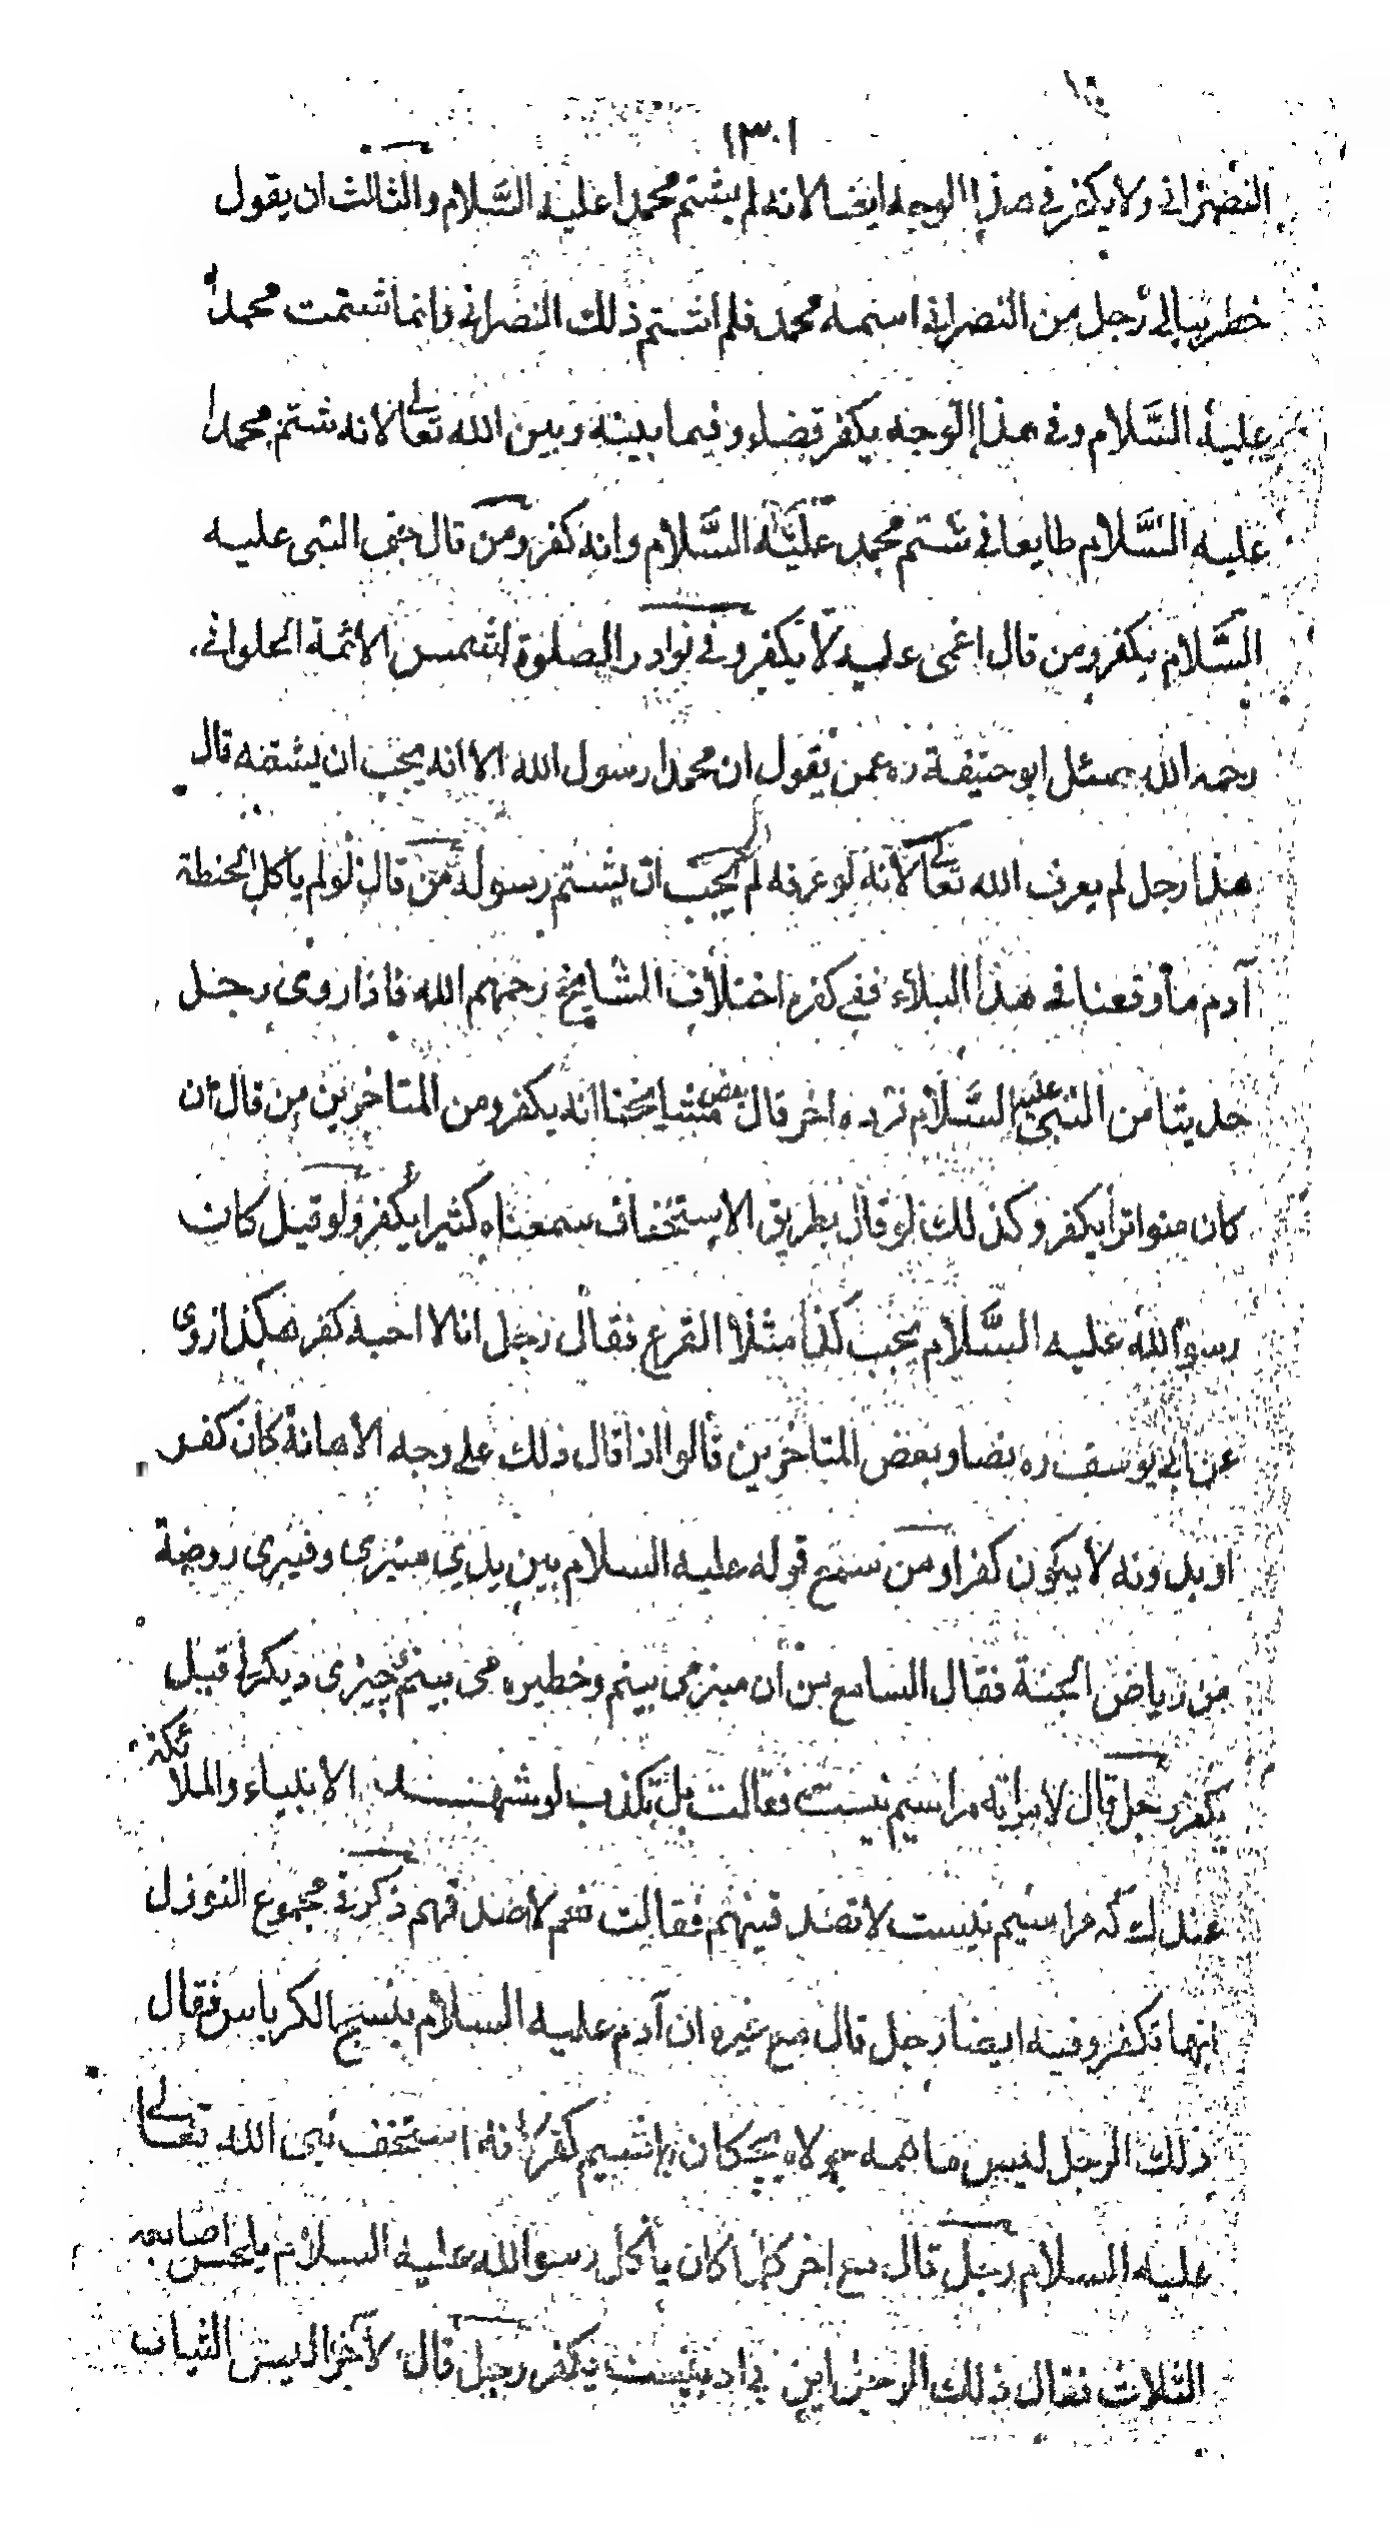 ١٣٠١
النصرانى ولا يكفر فى هذا الوجه ايضا لانه لم يشتم محمدا عليه السّلام والثالث ان يقول
خطر ببالى رجل من النصرانى اسمه محمد فلم اشتم ذلك النصرانى وانما شتمت محمدا
عليه السّلام وفى هذا الوجه يكفر قضاء وفيما بينه وبين الله تعالى لانه شتم محمدا
عليه السّلام طايعا فى شتم محمد عليه السّلام وانه كفر ومن قال جن النبى عليه
السّلام يكفر ومن قال اغمى عليه لا يكفر وفى نوادر الصلوة لشمس الائمة الحلوانى
رحمه الله سئل ابو حنيفة ره عمن يقول ان محمدا رسول الله الا انه يجب ان يشتمه قال
هذا رجل لم يعرف الله تعالى لانه لو عرفه لم يجب ان يشتم رسوله من قال لو لم ياكل الحنطة
آدم ما وقعنا فى هذا البلاء ففى كفره اختلاف المشايخ رحمهم الله فاذا روى رجل
حديثا من النبى عليه السّلام فرده اخر قال بعض مشايخنا انه يكفر ومن المتاخرين من قال ان
كان متواترا يكفر وكذلك لو قال بطريق الاستخفاف سمعناه كثيرا يكفر ولو قيل كان
رسوالله عليه السّلام يحب كذا مثلا القرع فقال رجل انا لا احبه كفر هكذا روى
عن ابى يوسف ره نصا وبعض المتاخرين قالوا اذا قال ذلك على وجه الاهانة كان كفر
او بدونه لا يكون كفرا ومن سمع قوله عليه السلام بين يدي منبرى وقبرى روضة
من رياض الجنة فقال السامع من ان منبر مى بينم وخطيره مى بينم چيزى ديكر لى قيل
يكفر رجل قال لامراته مرا سيم نيست فقالت بل تكذب لو شهد الانبياء والملائكة
عندك كه مرا سيم نيست لا تصدقينهم فقالت نعم لا اصدقهم ذكر فى مجموع النوزل
انها تكفر وفيه ايضا رجل قال مع غيره ان آدم عليه السلام ينسج الكرباس فقال
ذلك الرجل ليس ما همه جولاه بچكان باشيم كفر لانه استخف بنبى الله تعالى
عليه السلام رجل قال مع اخر كلما كان يأكل رسوالله عليه السلام يلحس اصابعه
الثلاث فقال ذلك الرجل اين بى ادبيست يكفر رجل قال لاخر البس الثياب